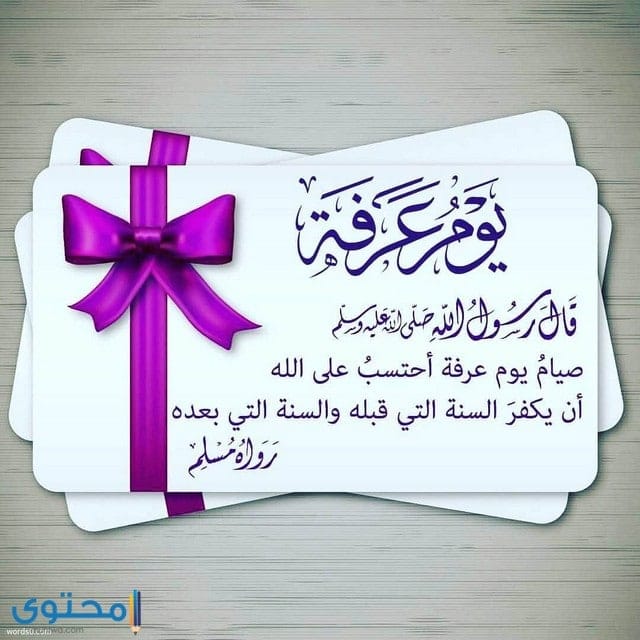 يَوْمُ عَرَفَة
قَالَ رَسُولُ اللهِ صَلَّى اللهُ عَلَيْهِ وَسَلَّم
صيامُ يوم عرفة أحتسبُ على الله
أن يكفرَ السنة التي قبله والسنة التي بعده
رَوَاهُ مُسْلِم
محتوى